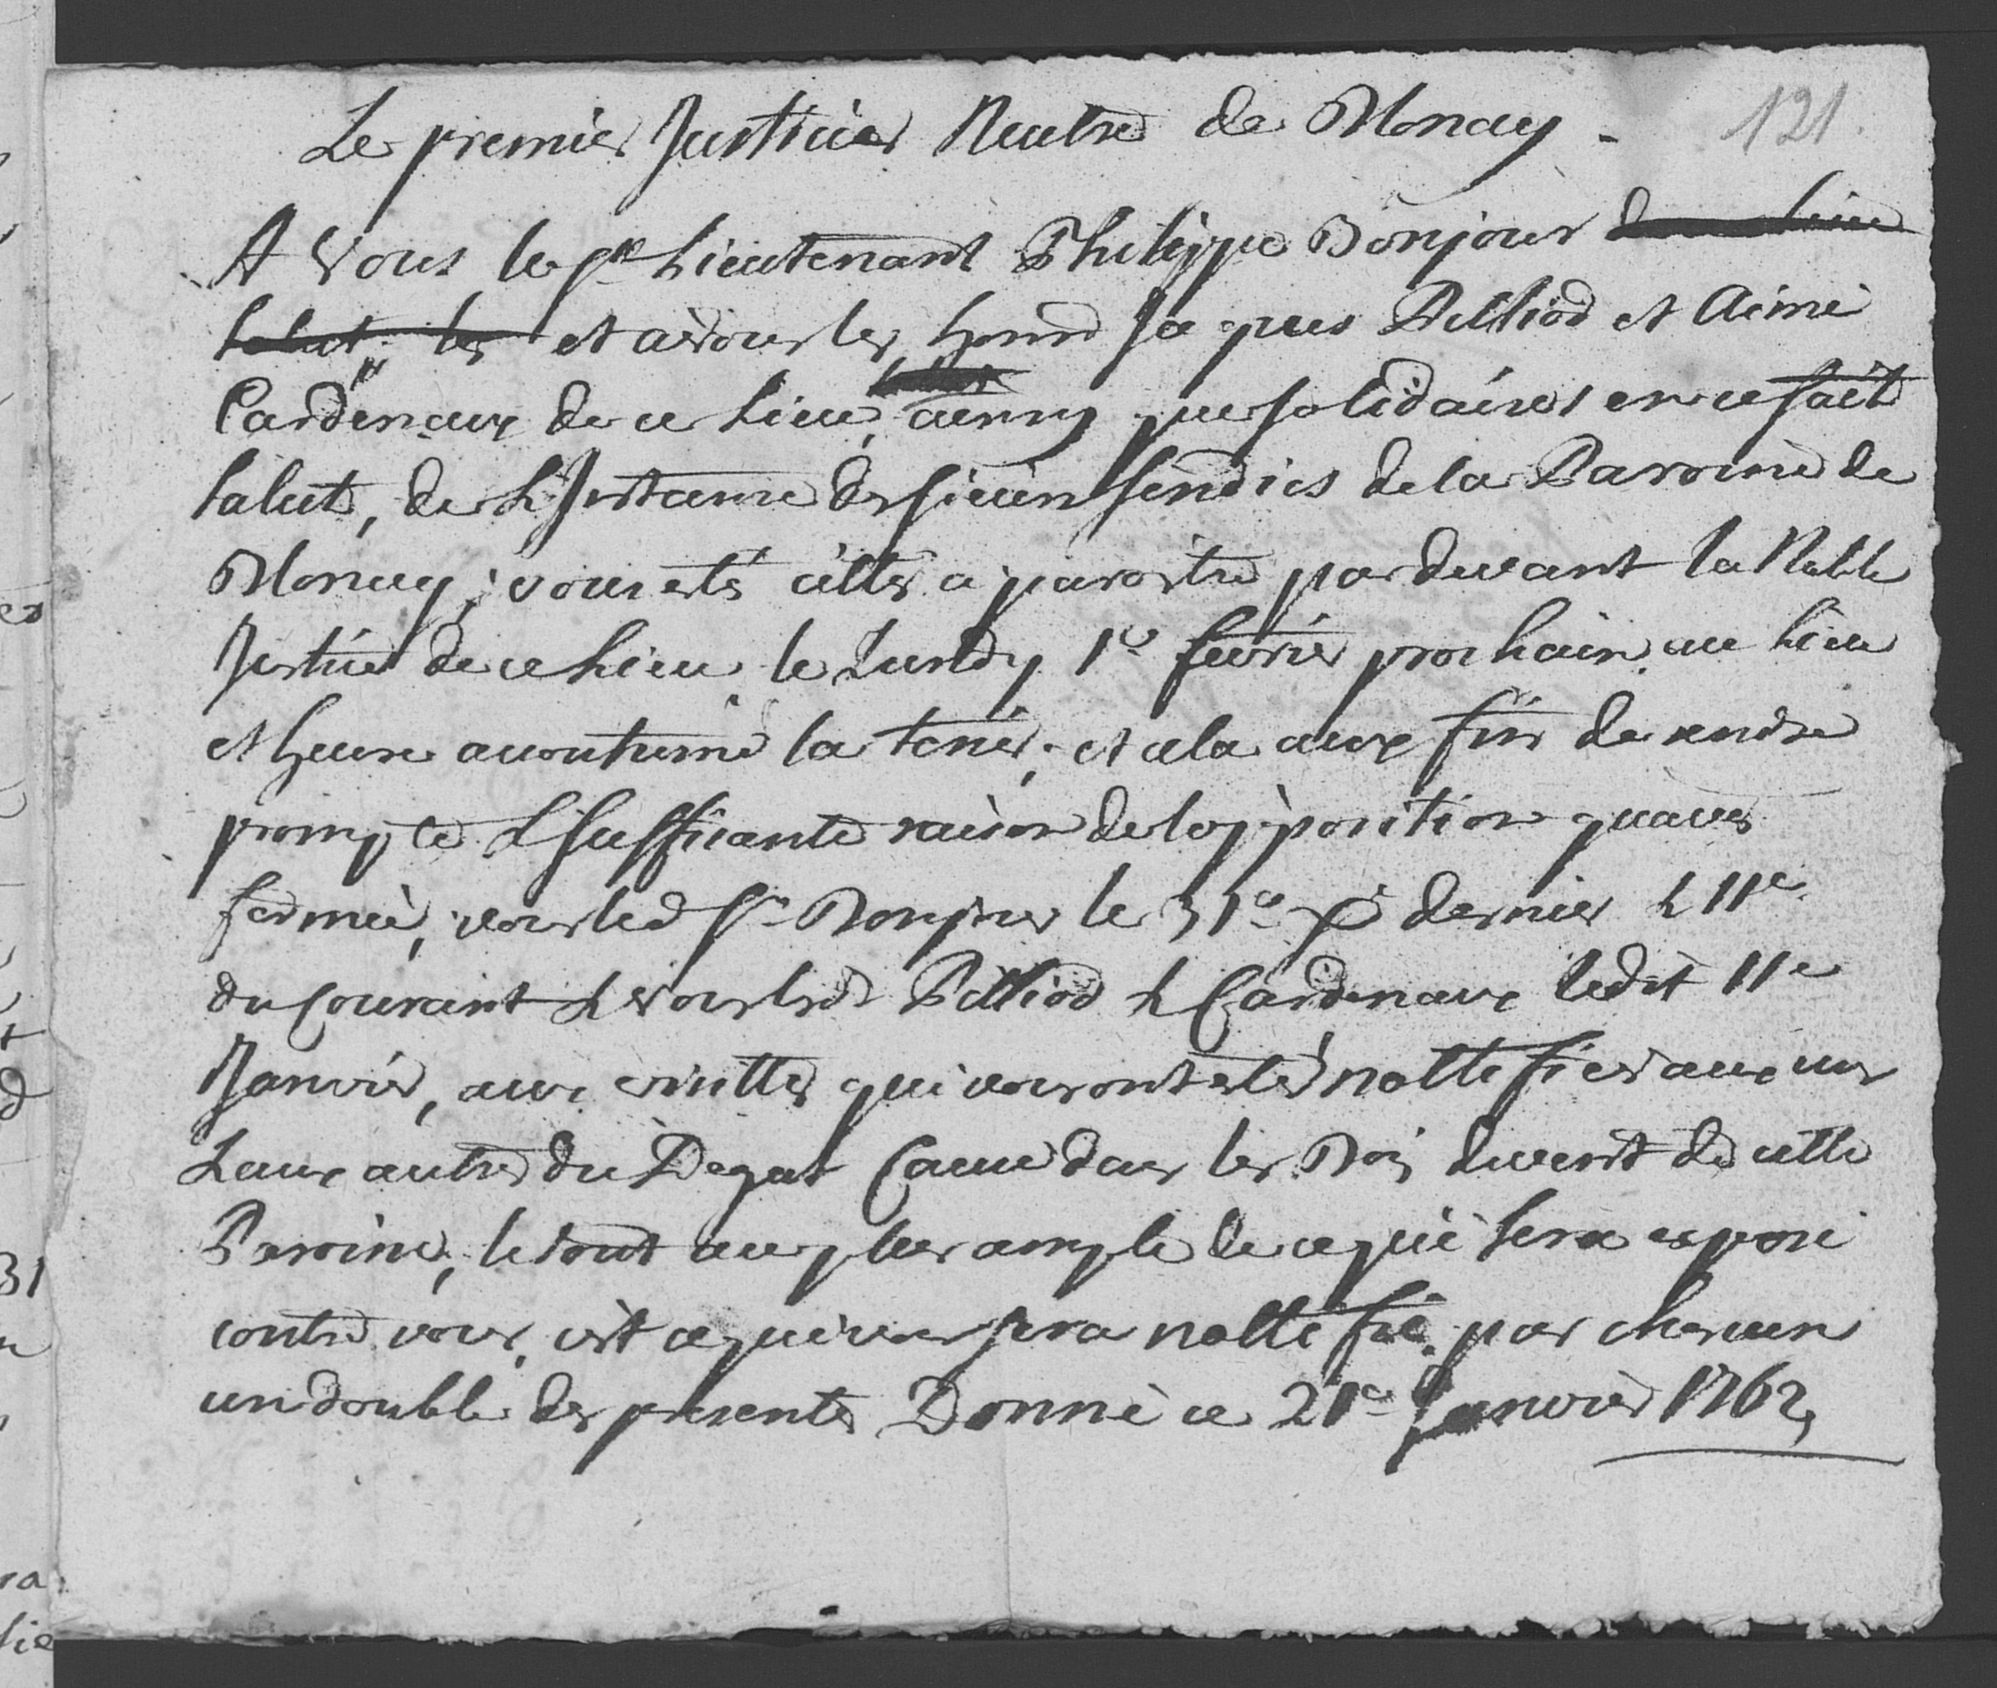 121.
Le premier Justicier Neutre de Blonay -
A Vous le Sr. Lieutenant Philippe Bonjour de ce lieu
salut, les et a vous les honnd Jaques Pilliod et Aimé
Cardinaux de ce Lieu, comme que solidaires en ce fait
Salut, de L'Instance des sieurs sendics de la Paroisse de
Blonay; vous etés cittés a paroitre pardevant la Noble
Justice de ce Lieu le Lundy 1er fevrier prochain au lieu
et heure accoutumé la tenir, et cela aux fins de rendre
prompte & suffisante raison de lopposition qu'avés
formée, vous led. Sr. Bonjour le 31e Xe dernier & 11e
du Courant & vous lesd. Pilliod & Cardinaux ledit 11e
Janvier, aux visittes qui vous ont etés nottifiées aux uns
& aux autres du Degat Causé dans les Bois de cette
Paroisse, le tout au plus ample de ce qui sera exposé
contre vous, c'est ce qui vous sera nottifié, par chacun
un double des presentes Donné ce 21e Janvier 1762,